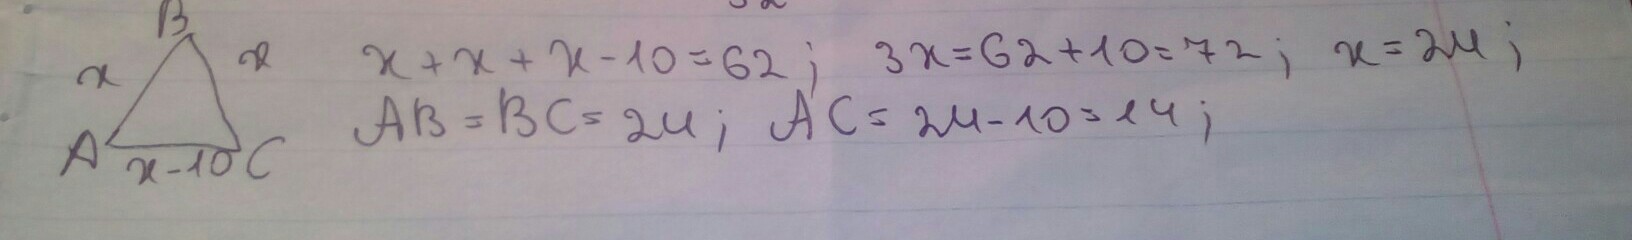 B
x x x + x + x - 10 = 62 ; 3x = 62 + 10 = 72 ; x = 24 ;
AB = BC = 24 ; AC = 24 - 10 = 14 ;
A x - 10 C